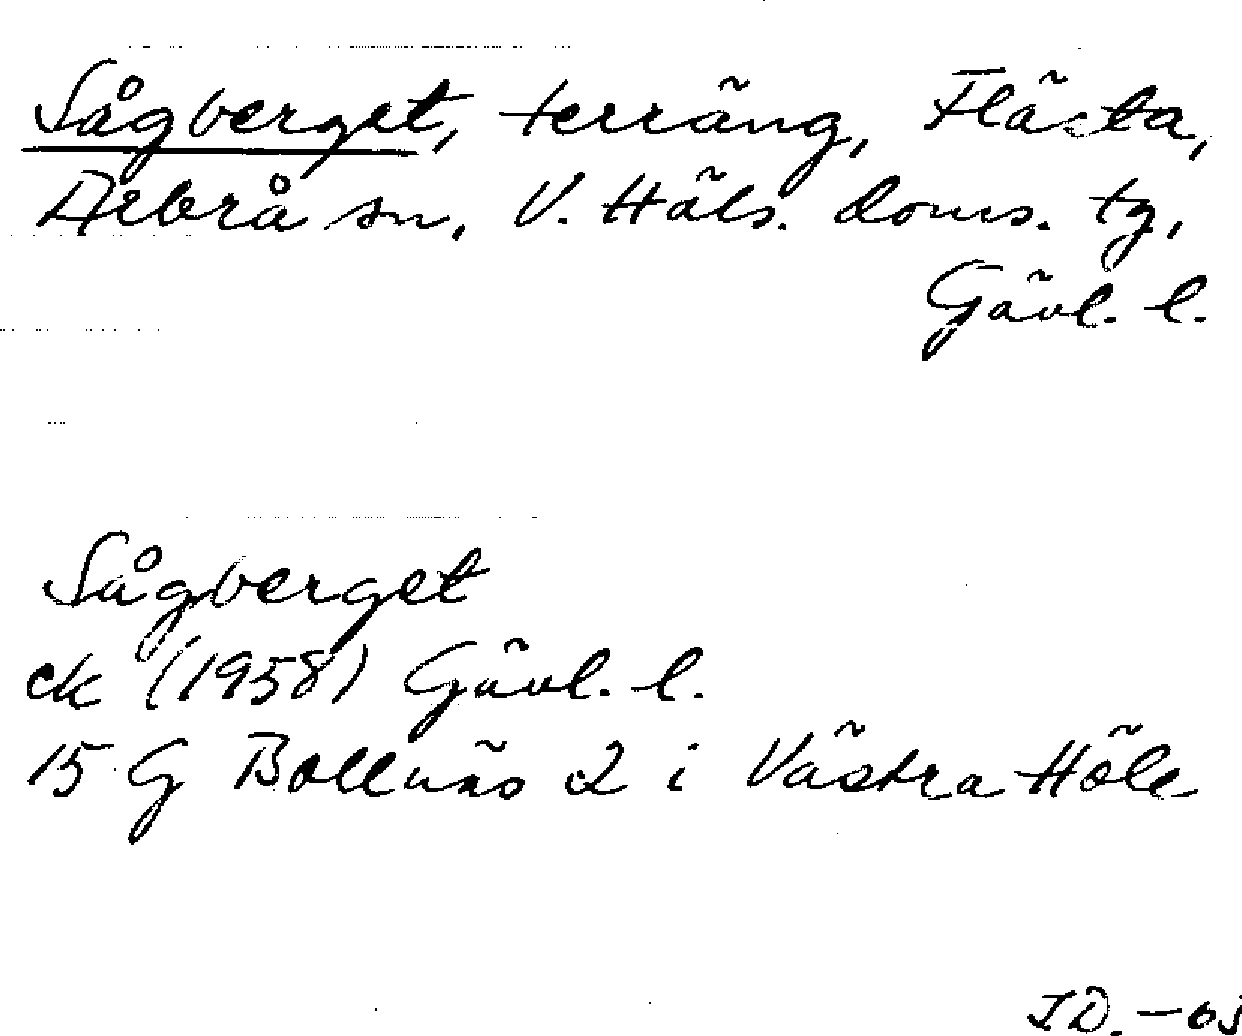 Sågberget, terräng, Flästa,
Arbrå sn, V. Häls. doms. tg,
Gävl. l.
Sågberget
ek (1958) Gävl. l.
15 G Bollnäs 2 i Västra Häls
I D.